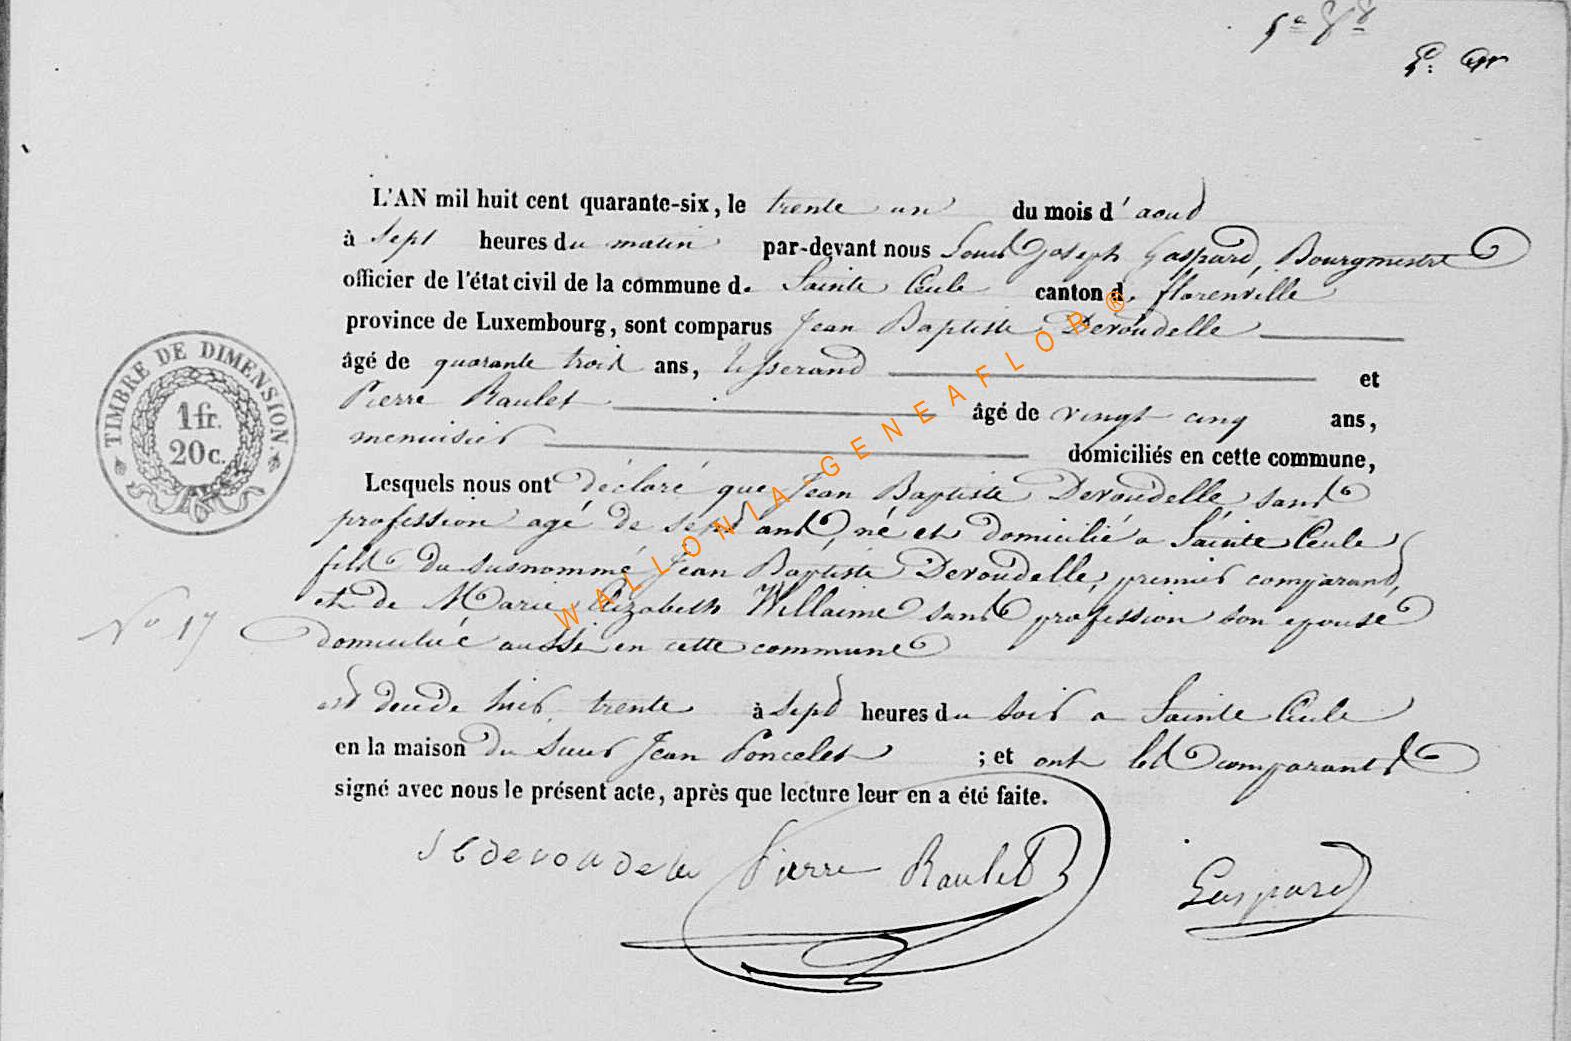 5e 8d
L'AN mil huit cent quarante-six, le trente un du mois d'aoud
à sept heures du matin par-devant nous Louis Joseph Gaspard, Bourgmestre
officier de l'état civil de la commune d. Sainte Cécile canton d. florenville
province de Luxembourg, sont comparus Jean Baptiste Devoudelle
âgé de quarante trois ans, tisserand et
Pierre Raulet âgé de vingt cinq ans,
menuisier domiciliés en cette commune,
Lesquels nous ont déclaré que Jean Baptiste Devoudelle, sans
profession agé de sept ans, né et domicilié a Sainte Cécile
fils du susnommé Jean Baptiste Devoudelle, premier comparand,
et de Marie Elizabeth Willaime sans profession son epouse
domiciliée aussi en cette commune
est decede hier trente à sept heures du soir a Sainte Cécile
en la maison du sieur Jean Poncelet ; et ont les comparants
signé avec nous le présent acte, après que lecture leur en a été faite.
Pierre Raulet Gaspard
No 17
TIMBRE DE DIMENSION.
1 fr.
20 c.
WALLONIA-GENEAFLOR®